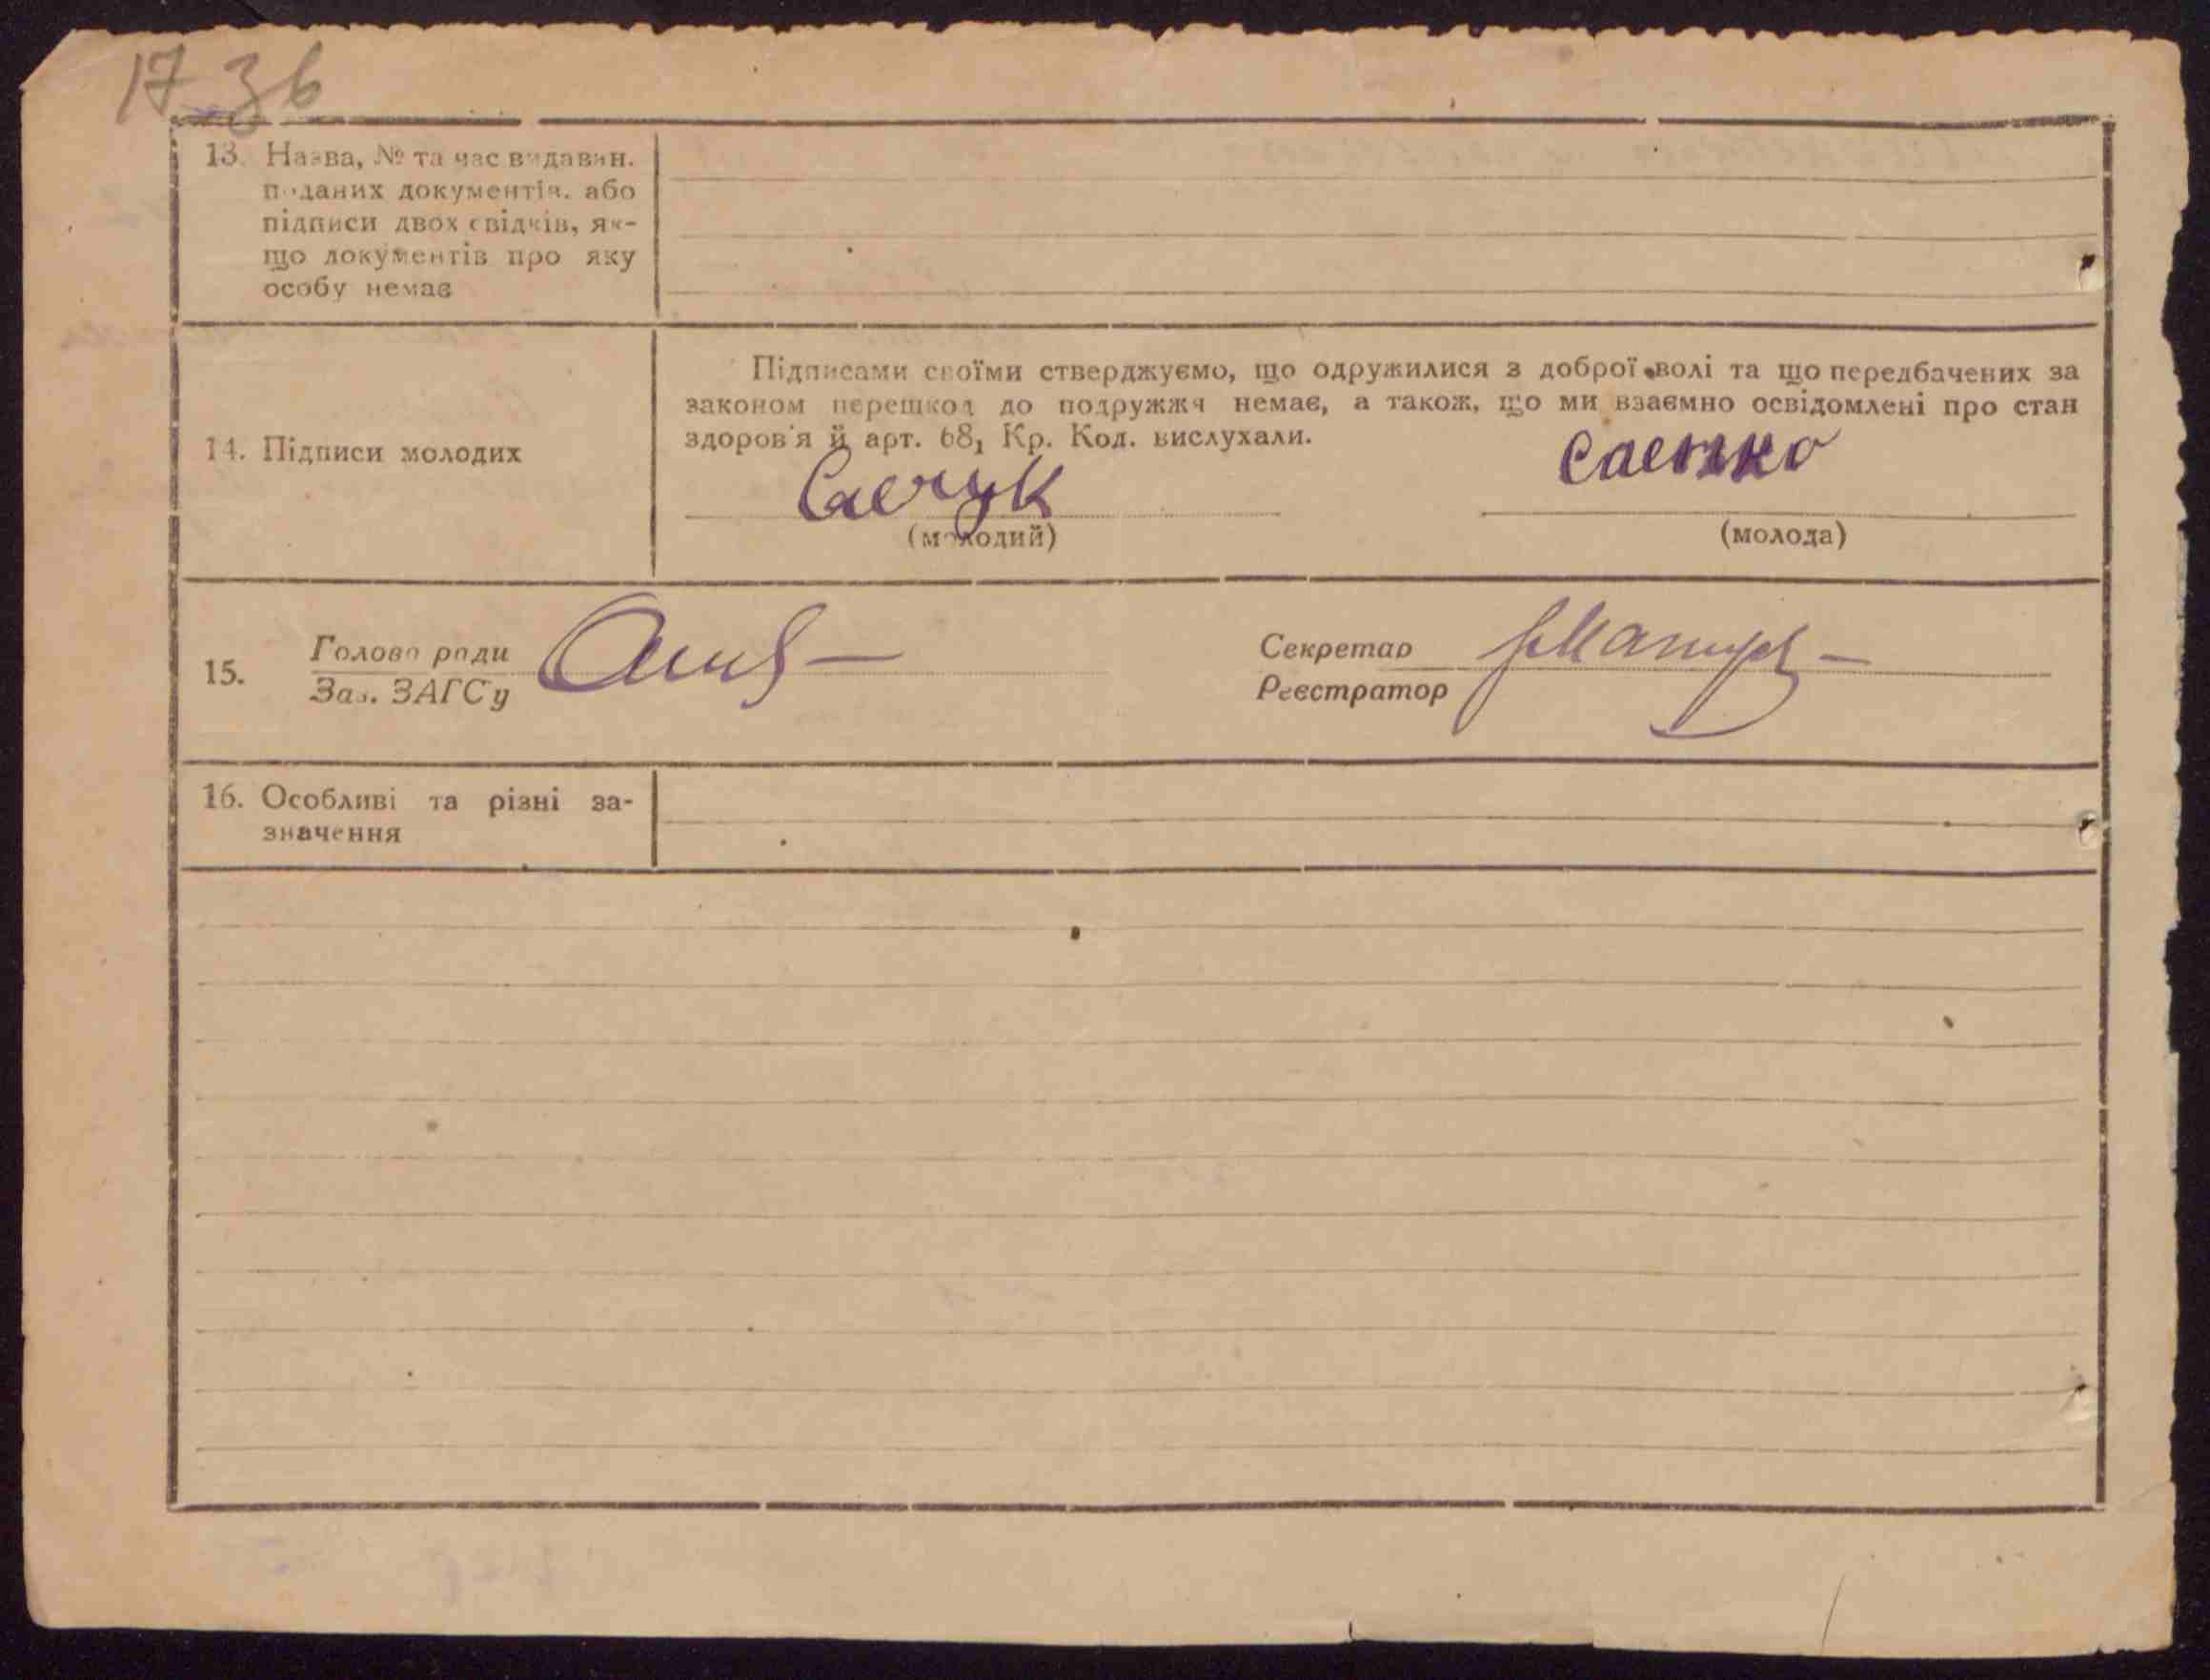 17 зв
13. Назва, № та час видаван.
поданих документів. або
підписи двох свідків, як-
що документів про яку
особу немає
Підписами своїми стверджуємо, що одружилися з доброї волі та що передбачених за
законом перешкод до подружжя немає, а також, що ми взаємно освідомлені про стан
здоров'я й арт. 68₁ Кр. Код. вислухали.
14. Підписи молодих
Саенко
(молодий)
(молода)
15. Голова ради
Зав. ЗАГСу
Секретар
Реєстратор
16. Особливі та різні за-
значення